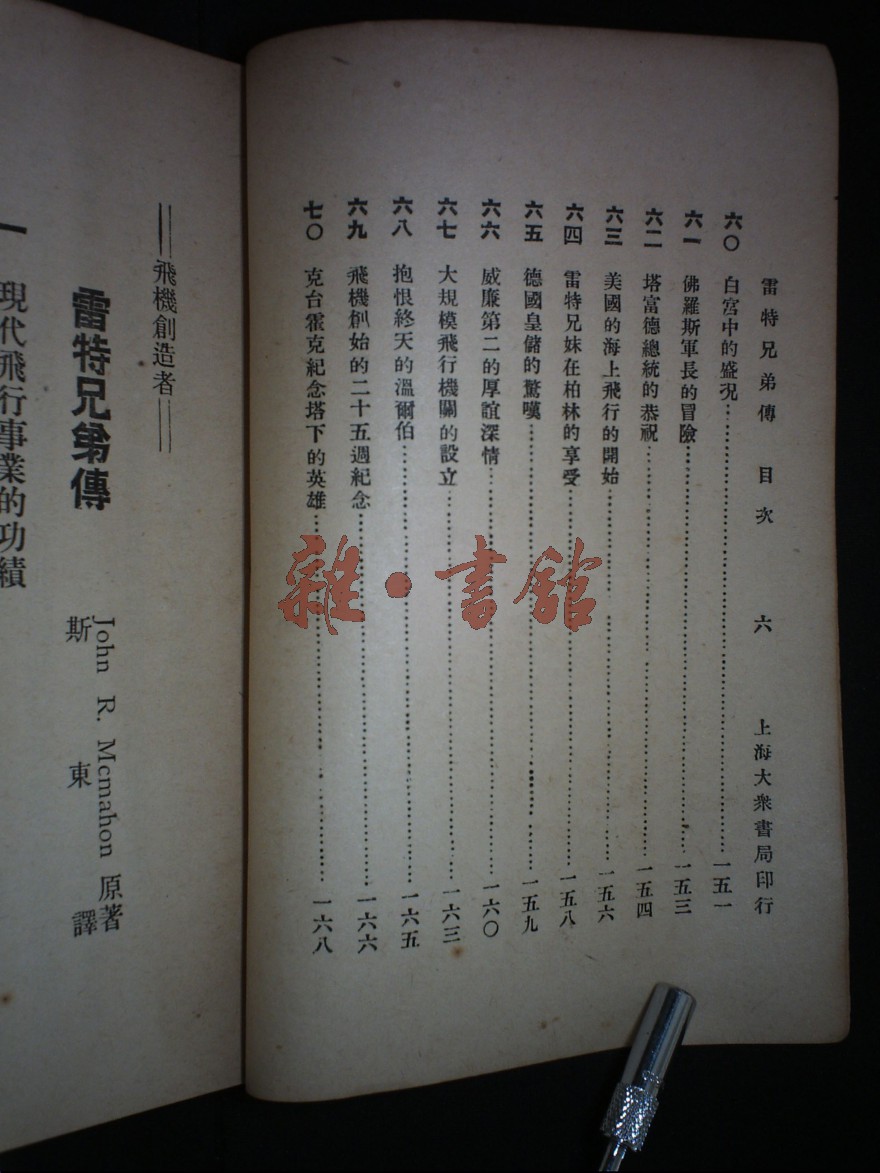 雷特兄弟傳 目次 六 上海大衆書局印行
六〇 白宮中的盛況 一五一
六一 佛羅斯軍長的冒險 一五三
六二 塔富德總統的恭祝 一五四
六三 美國的海上飛行的開始 一五六
六四 雷特兄妹在柏林的享受 一五八
六五 德國皇儲的驚嘆 一五九
六六 威廉第二的厚誼深情 一六〇
六七 大規模飛行機關的設立 一六三
六八 抱恨終天的溫爾伯 一六五
六九 飛機創始的二十五週紀念 一六六
七〇 克台霍克紀念塔下的英雄 一六八
飛機創造者
雷特兄弟傳
John R. Mcmahon 原著
斯東譯
一 現代飛行事業的功績
雜·書館